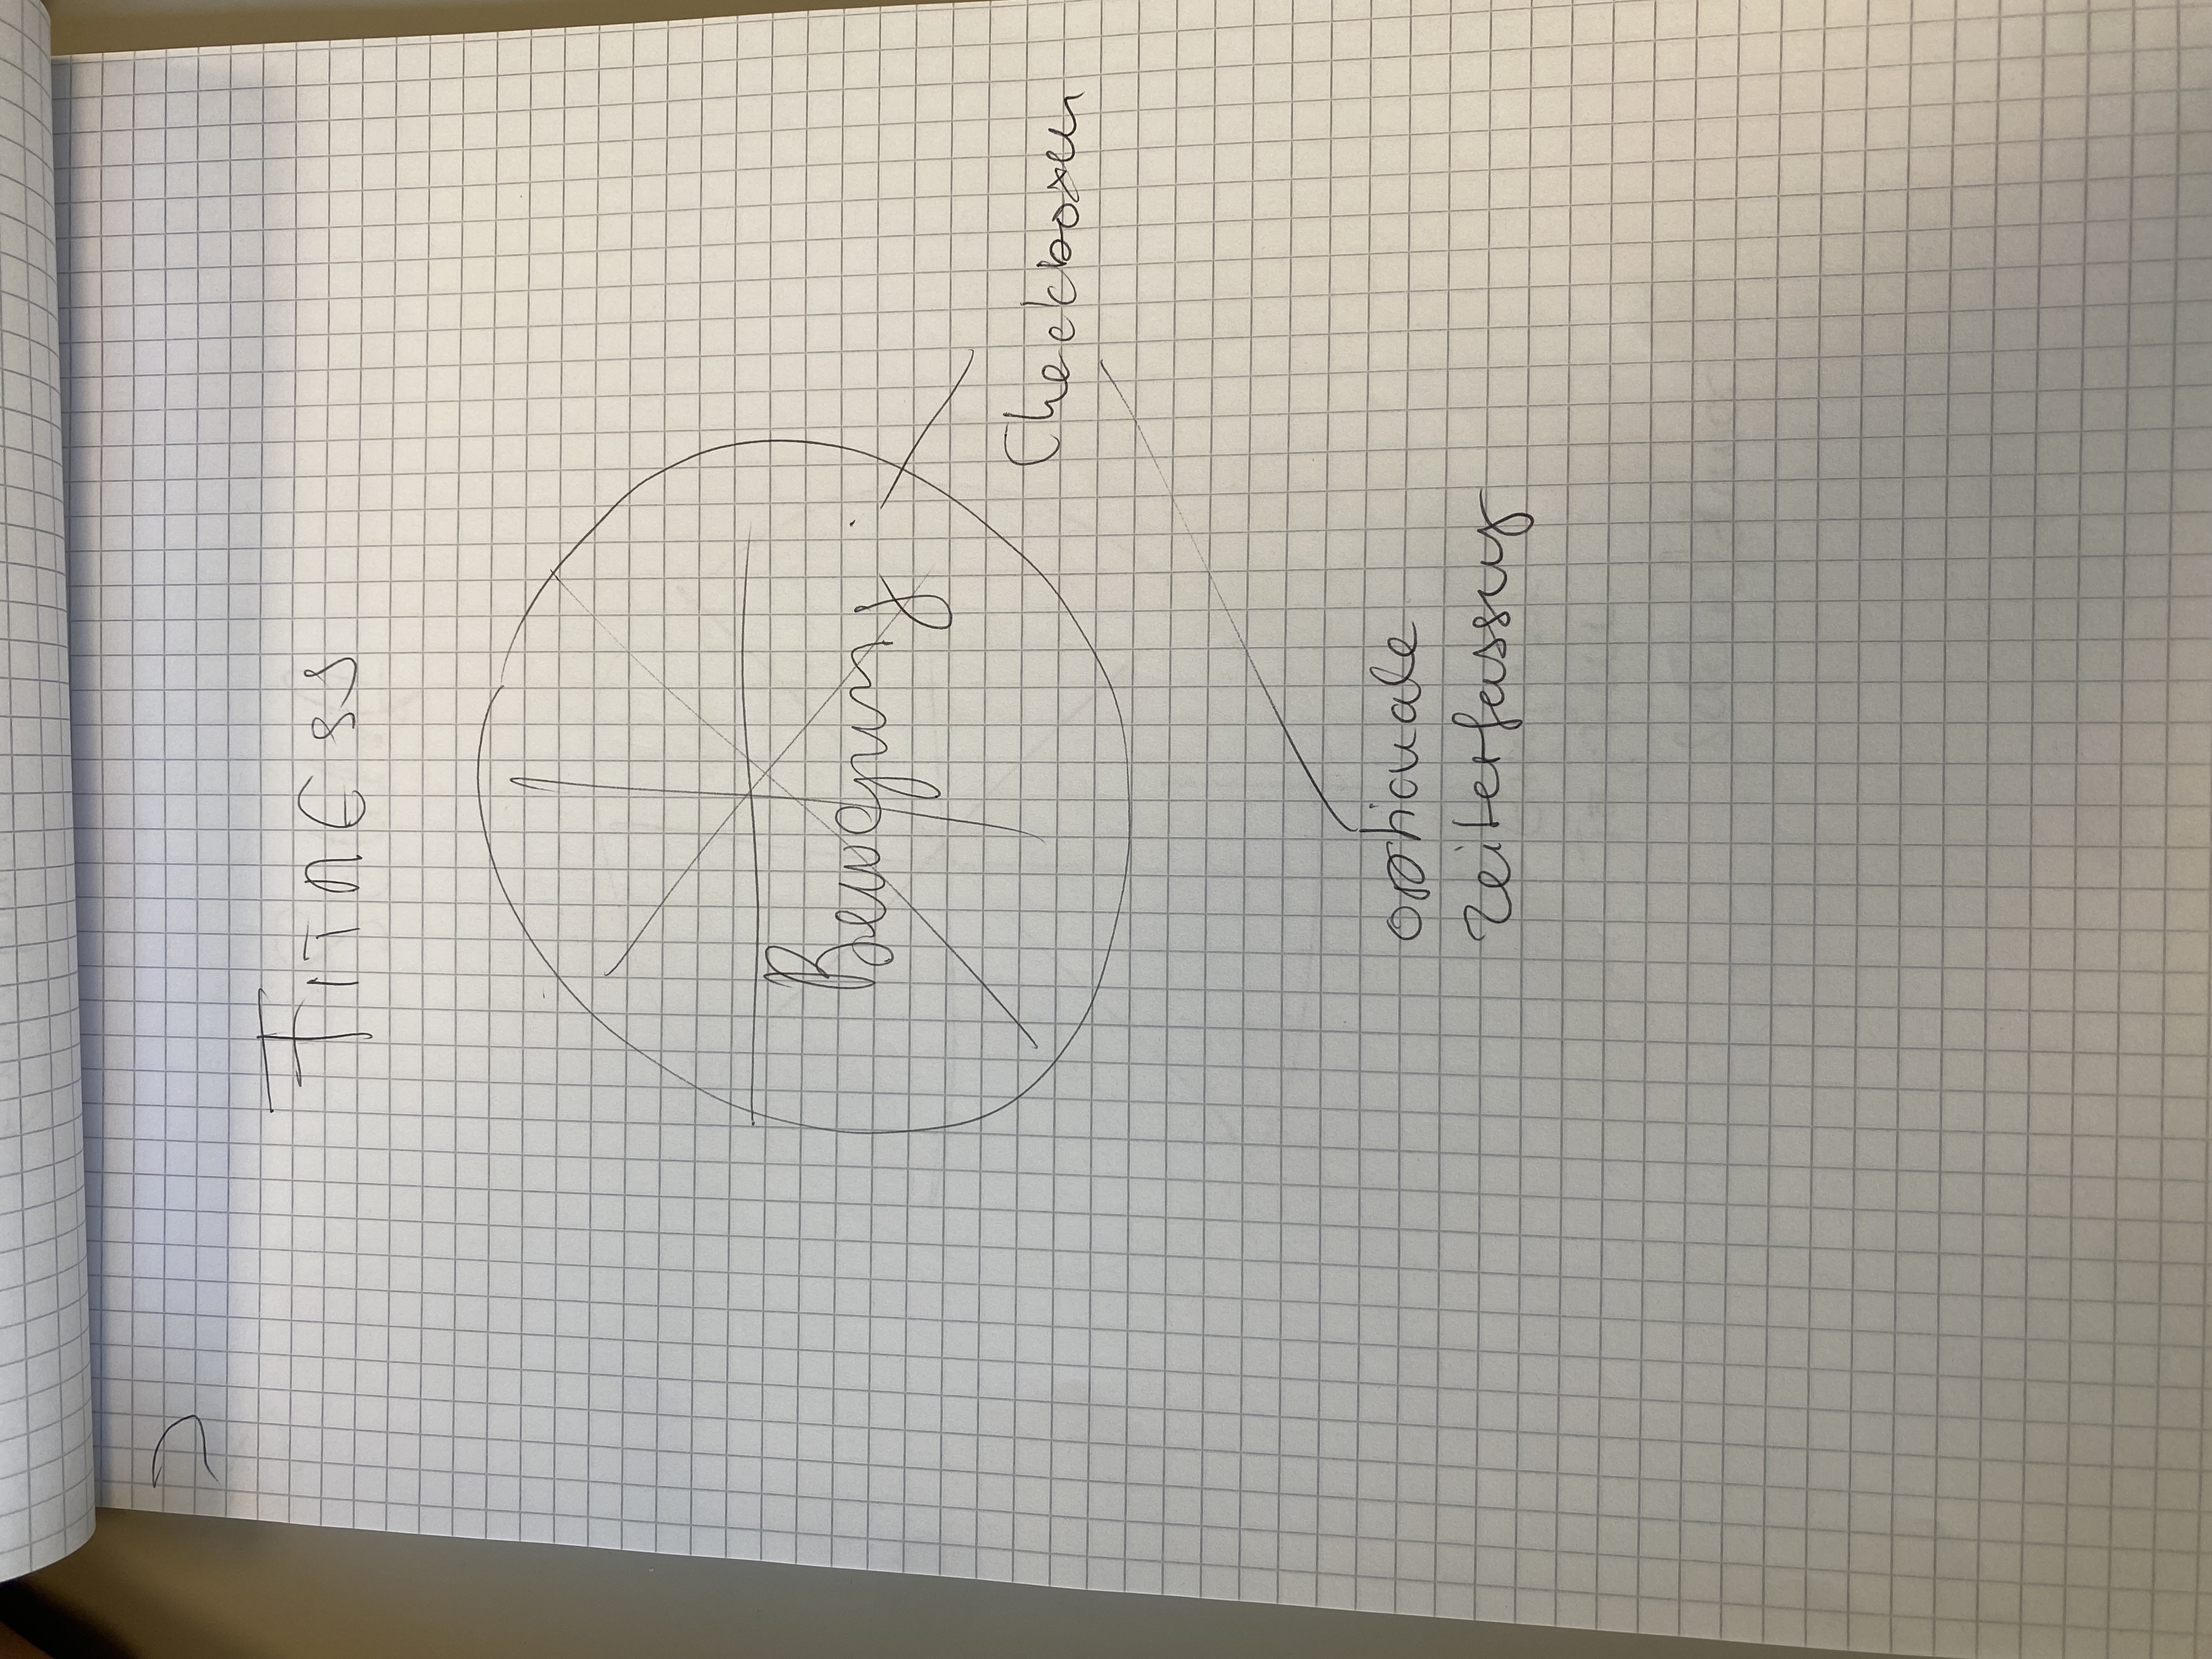 FITNESS
Bewegung
Checkboxen
optionale
Zeiterfassung